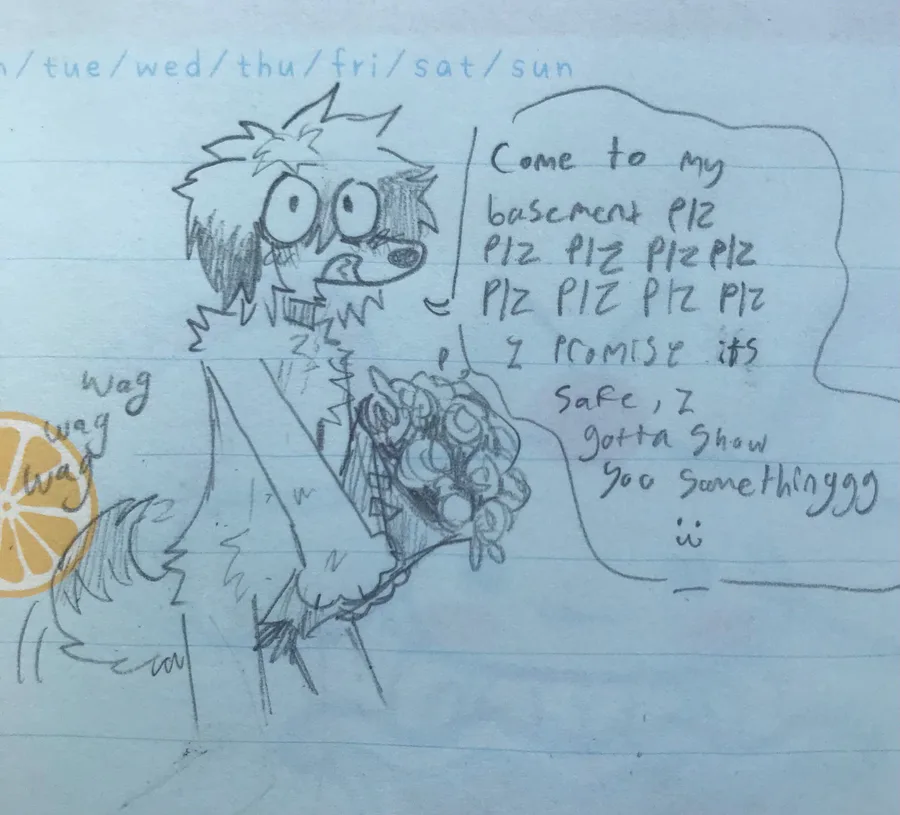 /tue/wed/thu/fri/sat/sun
Come to my
basement plz
plz plz plz plz
plz plz plz plz
I promise its
safe, I
gotta show
you somethinggg
wag
wag
wag